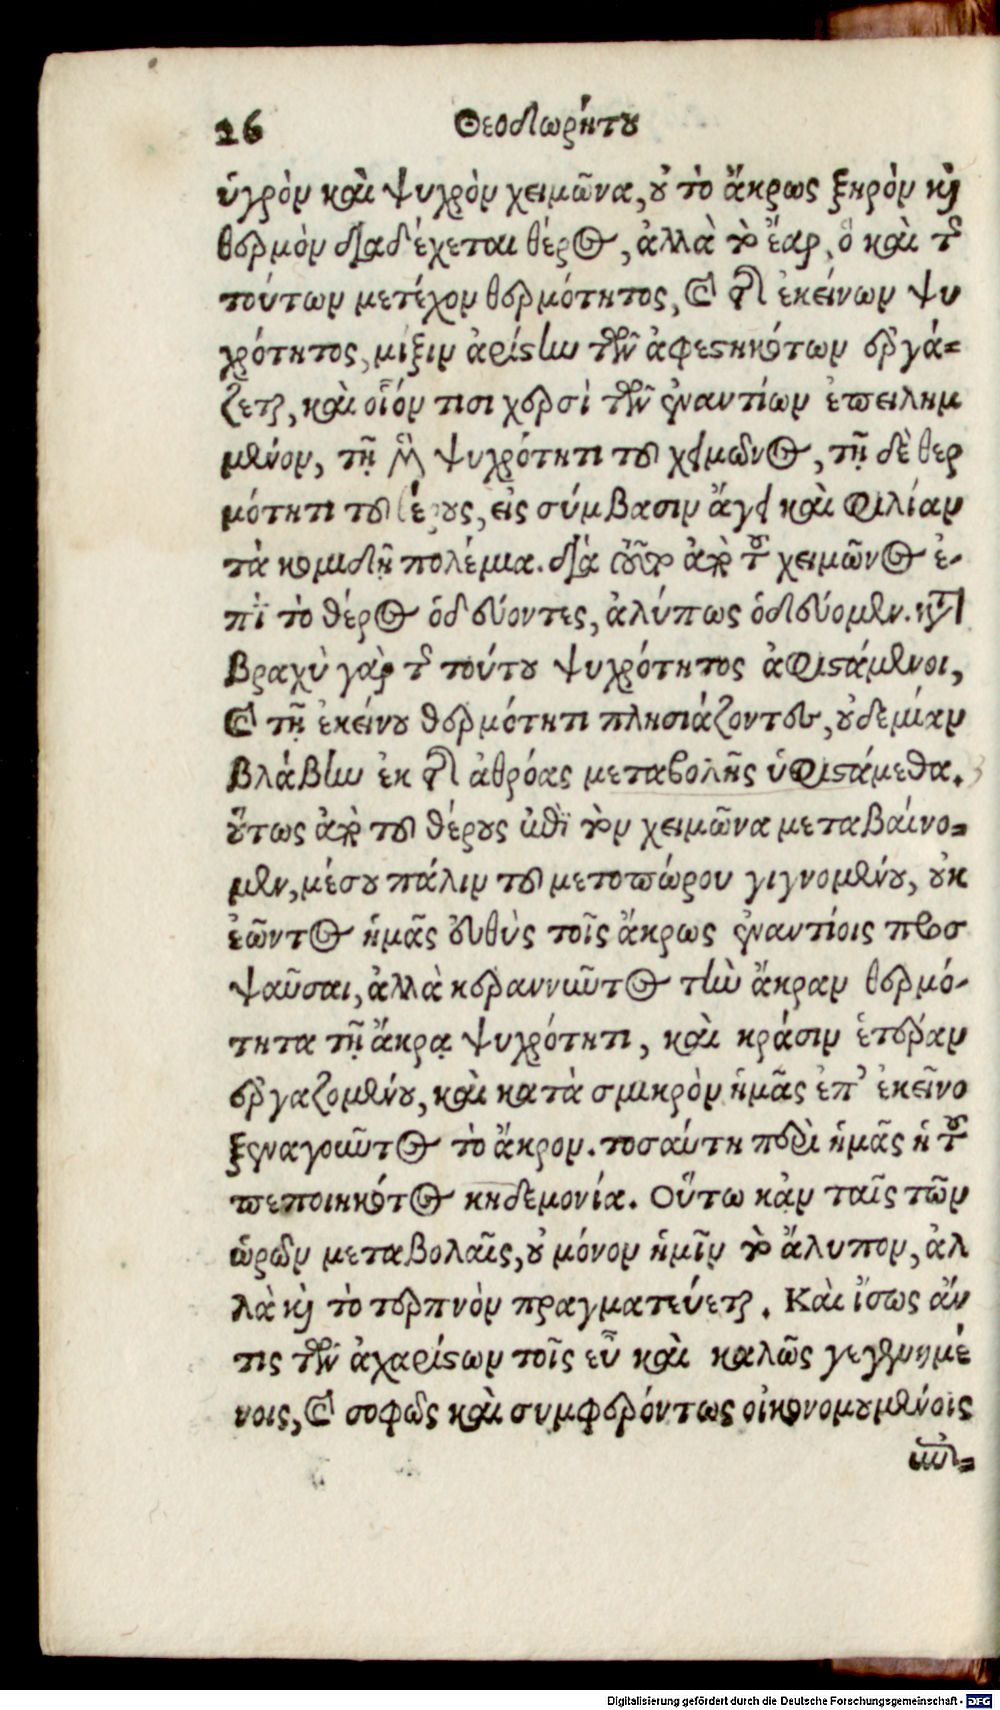 26 Θεοδωρήτου
ὑγρὸν καὶ ψυχρὸν χειμῶνα, οὐ τὸ ἄκρως ξηρὸν καὶ
θερμὸν διαδέχεται θέρος, ἀλλὰ τὸ ἔαρ, ὃ καὶ τῆς
τούτων μετέχον θερμότητος, καὶ τῆς ἐκείνων ψυ
χρότητος, μίξιν ἀρίστην τῶν ἀφεστηκότων ἐργά-
ζεται, καὶ οἷόν τισι χερσὶ τῶν ἐναντίων ἐπειλημ
μένον, τῇ μὲν ψυχρότητι τοῦ χειμῶνος, τῇ δὲ θερ
μότητι τοῦ θέρους, εἰς σύμβασιν ἄγει καὶ φιλίαν
τὰ κομιδῇ πολέμια. διά τοι τοῦτο ἀπὸ τοῦ χειμῶνος ἐ-
πὶ τὸ θέρος ὁδεύοντες, ἀλύπως ὁδεύομεν. κατὰ
βραχὺ γὰρ τῆς τούτου ψυχρότητος ἀφιστάμενοι,
καὶ τῇ ἐκείνου θερμότητι πλησιάζοντες, οὐδεμίαν
βλάβην ἐκ τῆς ἀθρόας μεταβολῆς ὑφιστάμεθα.
οὕτως ἀπὸ τοῦ θέρους ἐπὶ τὸν χειμῶνα μεταβαίνο-
μεν, μέσου πάλιν τοῦ μετοπώρου γιγνομένου, οὐκ
ἐῶντος ἡμᾶς εὐθὺς τοῖς ἄκρως ἐναντίοις προσ
ψαῦσαι, ἀλλὰ κεραννῦντος τὴν ἄκραν θερμό-
τητα τῇ ἄκρᾳ ψυχρότητι, καὶ κράσιν ἑτέραν
ἐργαζομένου, καὶ κατὰ σμικρὸν ἡμᾶς ἐπ' ἐκεῖνο
ξεναγοῦντος τὸ ἄκρον. τοσαύτη περὶ ἡμᾶς ἡ τοῦ
πεποιηκότος κηδεμονία. Οὕτω κἀν ταῖς τῶν
ὡρῶν μεταβολαῖς, οὐ μόνον ἡμῖν τὸ ἄλυπον, ἀλ
λὰ καὶ τὸ τερπνὸν πραγματεύεται. Καὶ ἴσως ἄν
τις τῶν ἀχαρίστων τοῖς εὖ καὶ καλῶς γεγενημέ
νοις, καὶ σοφῶς καὶ συμφερόντως οἰκονομουμένοις
Digitalisierung gefördert durch die Deutsche Forschungsgemeinschaft - DFG